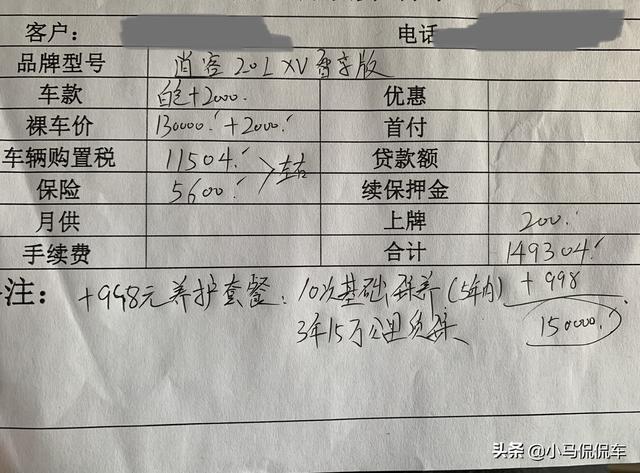 客户： 电话
品牌型号 逍客 2.0L XV 尊享版
车款 白色+2000. 优惠
裸车价 130000.+2000. 首付
车辆购置税 11504. 贷款额
左右
保险 5600. 续保押金
月供 上牌 200.
手续费 合计 149304.
注： +998元养护套餐：10次基础保养(5年内) +998
3年15万公里质保 150000.
头条 @小马侃侃车